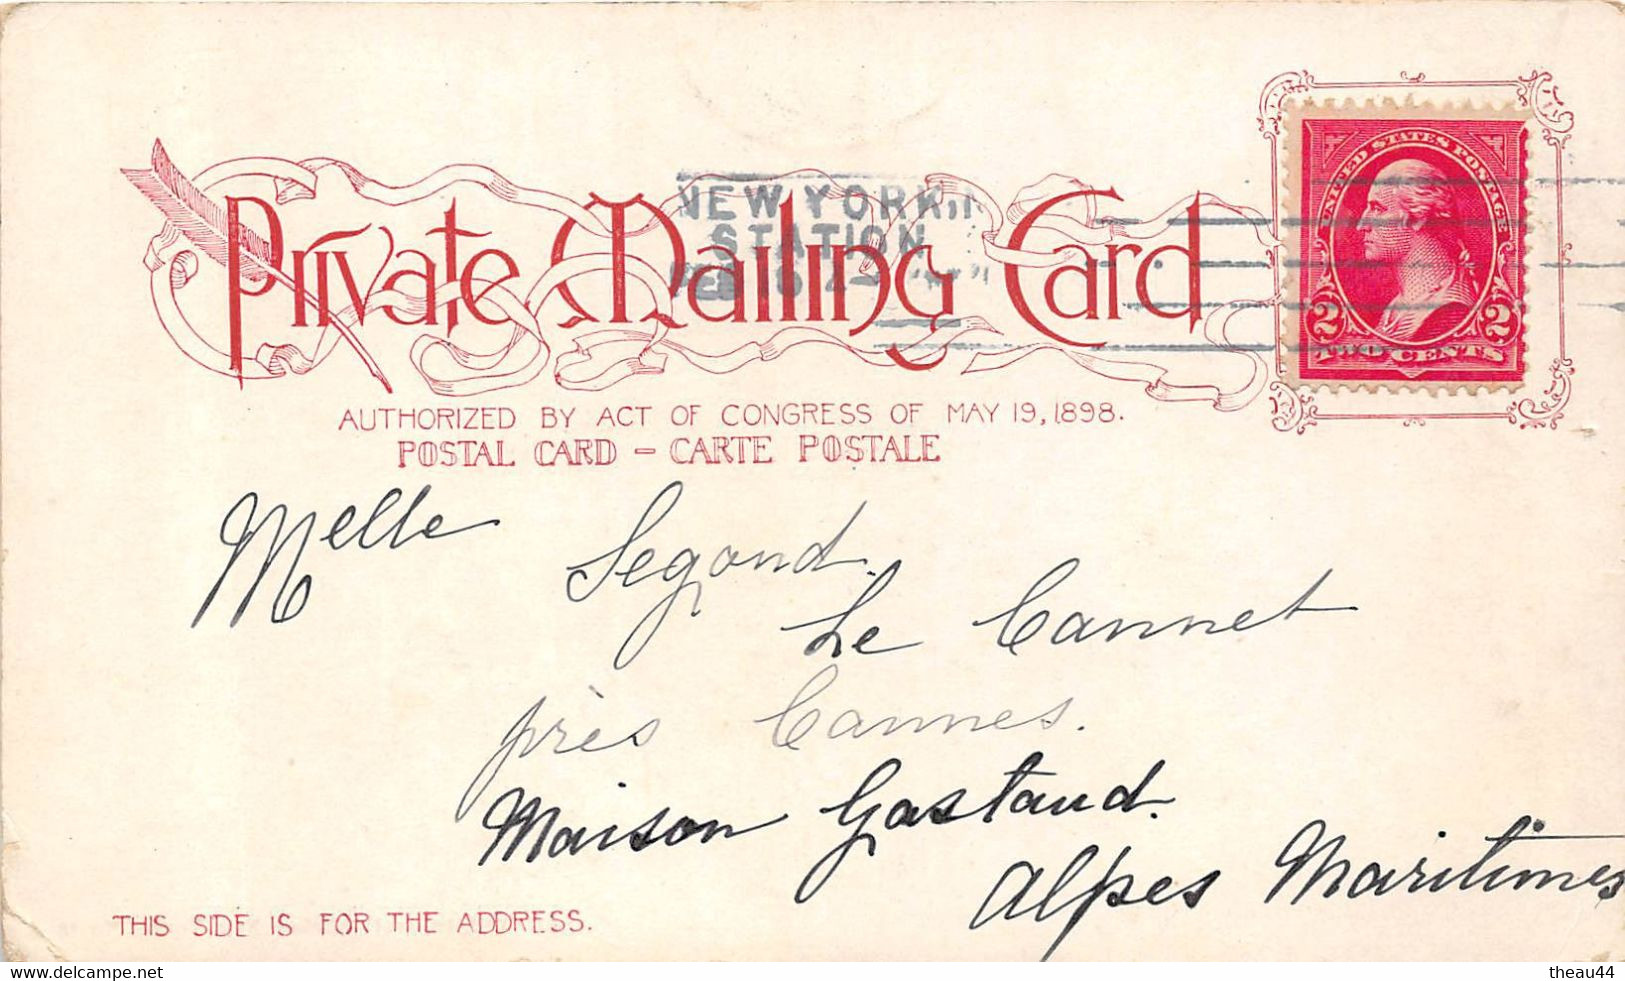 Private Mailing Card
NEW YORK, N
STATION
UNITED STATES POSTAGE
2 2
TWO CENTS
AUTHORIZED BY ACT OF CONGRESS OF MAY 19, 1898.
POSTAL CARD – CARTE POSTALE
Melle Segond.
Le Cannet
près Cannes.
Maison Gastaud.
Alpes Maritimes
THIS SIDE IS FOR THE ADDRESS.
www.delcampe.net
theau44